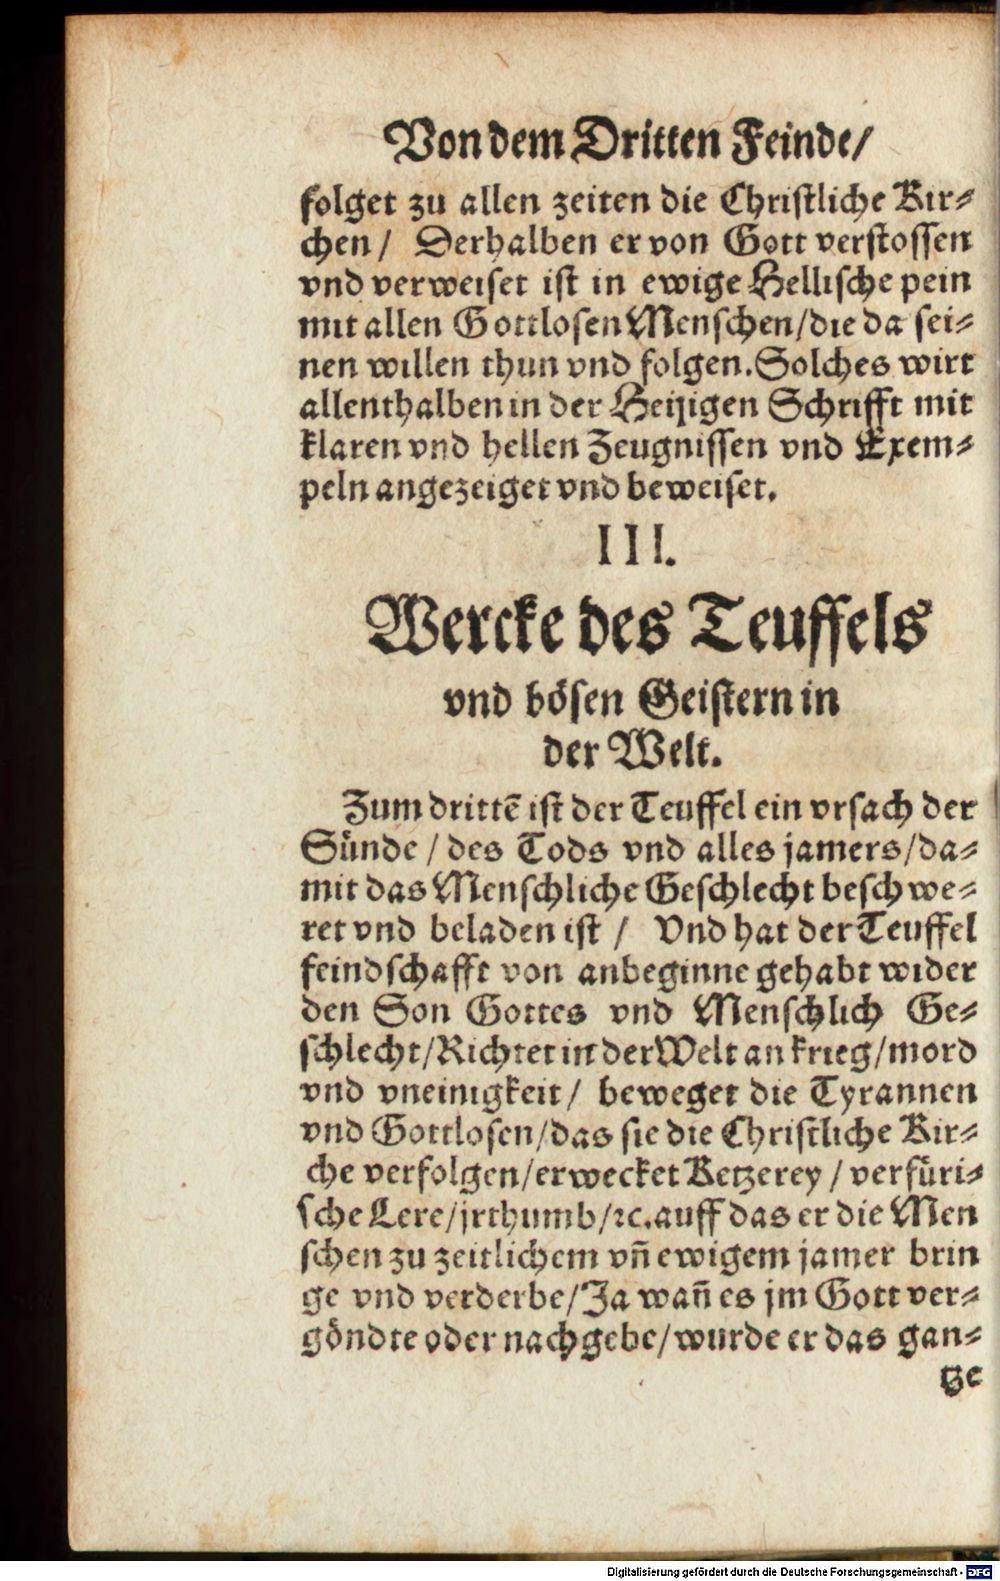 Von dem Dritten Feinde/
folget zu allen zeiten die Christliche Kir⸗
chen/ Derhalben er von Gott verstossen
vnd verweiset ist in ewige Hellische pein
mit allen Gottlosen Menschen/die da sei⸗
nen willen thun vnd folgen. Solches wirt
allenthalben in der Heiligen Schrifft mit
klaren vnd hellen Zeugnissen vnd Exem⸗
peln angezeiget vnd beweiset.
III.
Wercke des Teuffels
vnd bösen Geistern in
der Welt.
Zum drittẽ ist der Teuffel ein vrsach der
Sünde / des Tods vnd alles jamers/da⸗
mit das Menschliche Geschlecht beschwe⸗
ret vnd beladen ist / Vnd hat der Teuffel
feindschafft von anbeginne gehabt wider
den Son Gottes vnd Menschlich Ge⸗
schlecht/Richtet in der Welt an krieg/mord
vnd vneinigkeit/ beweget die Tyrannen
vnd Gottlosen/das sie die Christliche Kir⸗
che verfolgen/erwecket Ketzerey / verfüri⸗
sche Lere/jrthumb/ꝛc. auff das er die Men
schen zu zeitlichem vñ ewigem jamer brin
ge vnd verderbe/Ja wañ es jm Gott ver⸗
göndte oder nachgebe/wurde er das gan⸗
tze
Digitalisierung gefördert durch die Deutsche Forschungsgemeinschaft - DFG